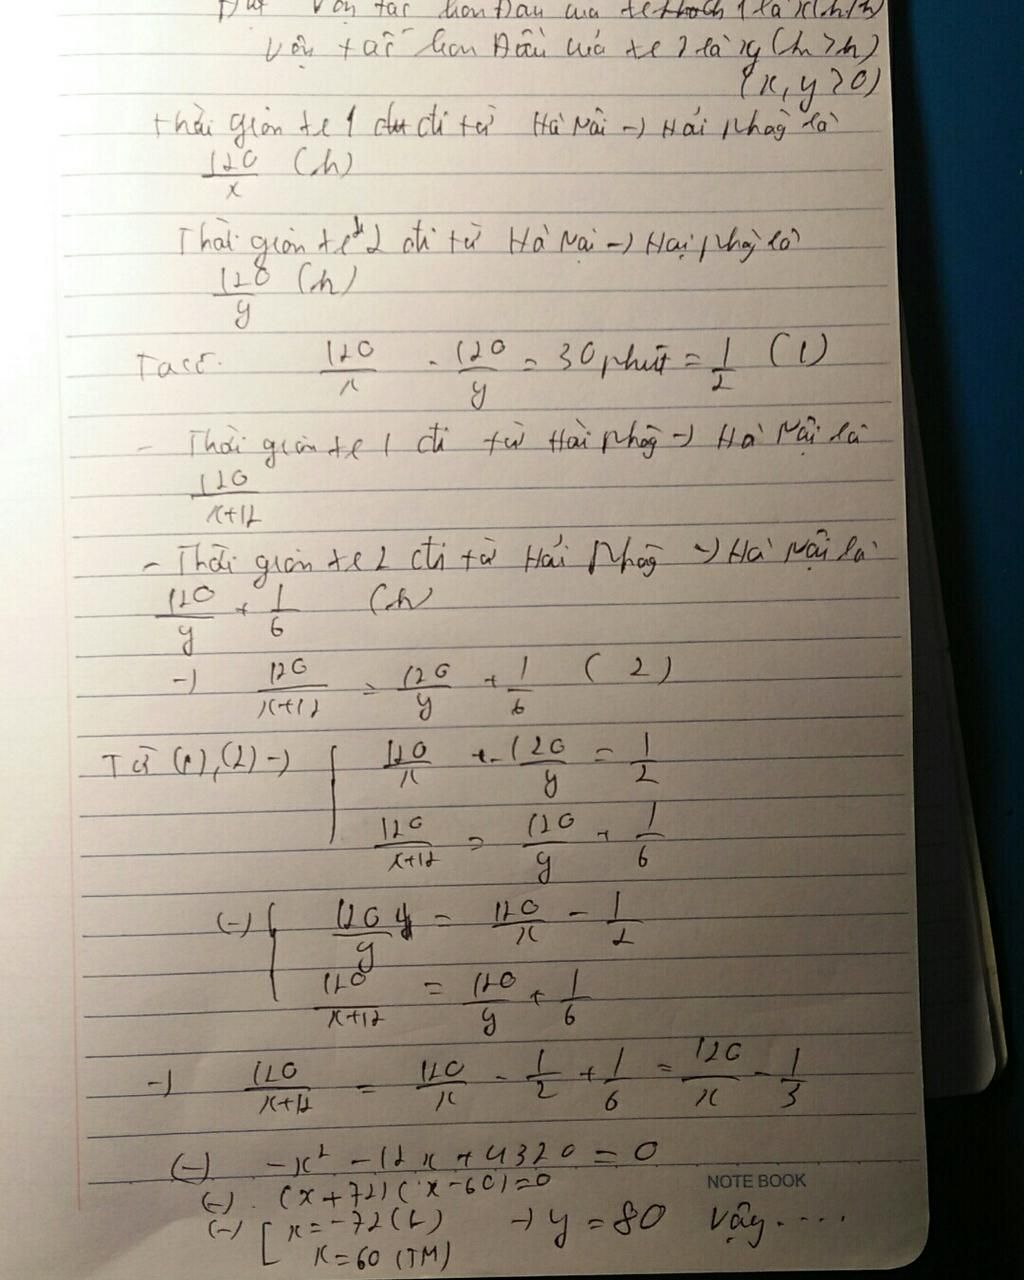 Đặt vận tốc ban đầu của xe thứ 1 là x (km/h)
vận tốc ban đầu của xe 2 là y (km/h)
(x, y > 0)
Thời gian xe 1 đi từ Hà Nội → Hải Phòng là
120/x (h)
Thời gian xe 2 đi từ Hà Nội → Hải Phòng là
120/y (h)
Ta có: 120/x - 120/y = 30 phút = 1/2 (1)
- Thời gian xe 1 đi từ Hải Phòng → Hà Nội là
120/x+12
- Thời gian xe 2 đi từ Hải Phòng → Hà Nội là
120/y + 1/6 (h)
→ 120/x+12 = 120/y + 1/6 (2)
Từ (1), (2) → { 120/x - 120/y = 1/2
120/x+12 = 120/y + 1/6
(-) { 120/y = 120/x - 1/2
120/x+12 = 120/y + 1/6
→ 120/x+12 = 120/x - 1/2 + 1/6 = 120/x - 1/3
(-) -x² - 12x + 4320 = 0
NOTE BOOK
(-) (x+72)(x-60)=0
(-) [ x = -72 (L) → y = 80 Vậy....
x = 60 (TM)